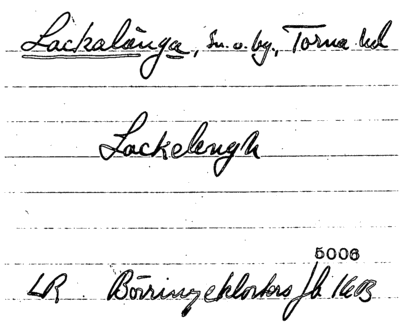 Lackalänga, sn. o. by, Torna hd
Lackelengh
5006
LR Börringeklosters jb 1603